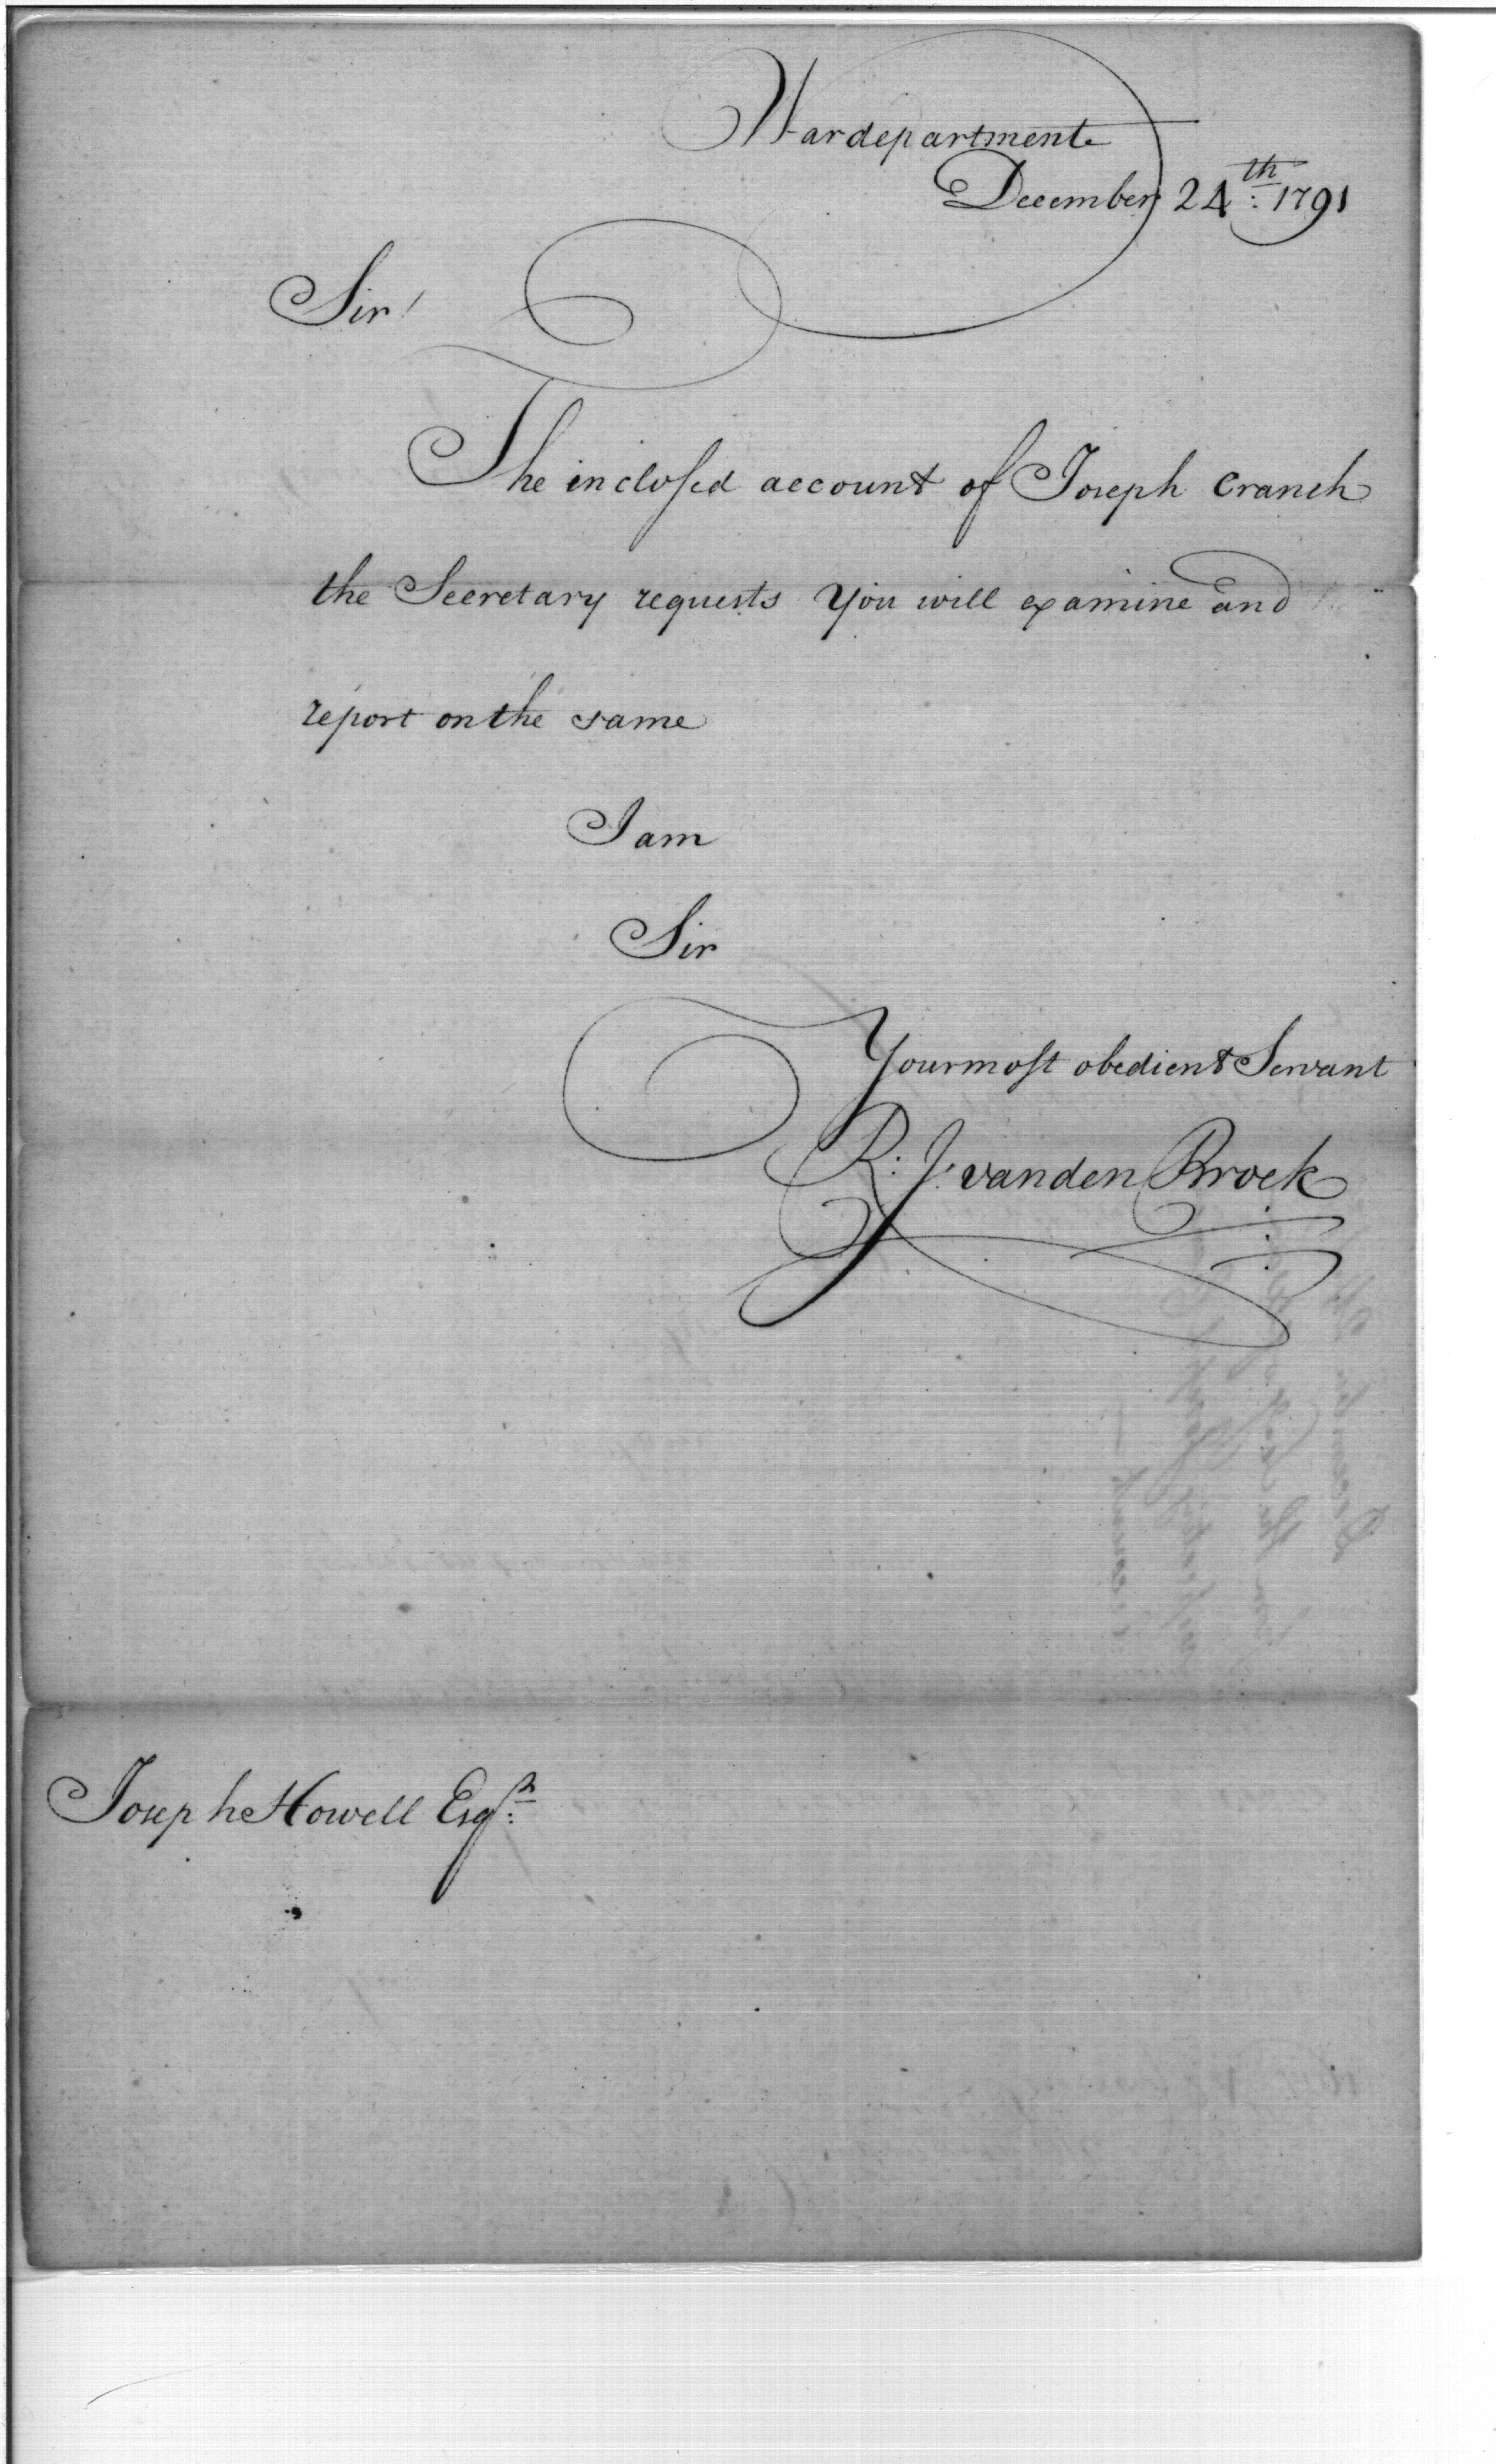 War department
December 24th: 1791
Sir!
The inclosed account of Joseph Cranch
the Secretary requests you will examine and
report on the same
I am
Sir
Your most obedient Servant
R: J: vanden Broek
Joseph Howell Esqr: